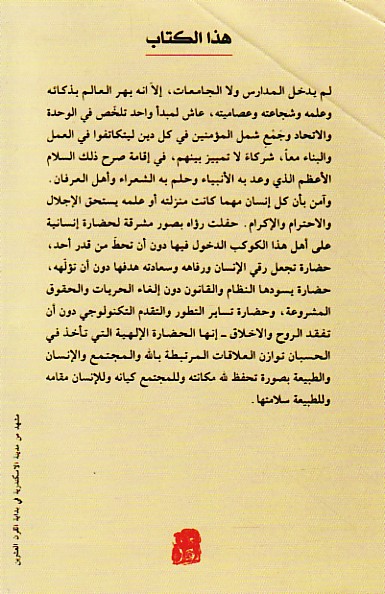 هذا الكتاب
لم يدخل المدارس ولا الجامعات، إلاّ انه بهر العالم بذكائه
وعلمه وشجاعته وعصاميته، عاش لمبدأ واحد تلخّص في الوحدة
والاتحاد وجَمْعِ شمل المؤمنين في كل دين ليتكاتفوا في العمل
والبناء معاً، شركاءَ لا تمييز بينهم، في إقامة صرح ذلك السلام
الأعظم الذي وعد به الأنبياء وحلم به الشعراء وأهل العرفان.
وآمن بأن كل إنسان مهما كانت منزلته أو علمه يستحق الإجلال
والاحترام والإكرام. حفلت رؤاه بصور مشرقة لحضارة إنسانية
على أهل هذا الكوكب الدخول فيها دون أن تحطّ من قدر أحد،
حضارة تجعل رقي الإنسان ورفاهه وسعادته هدفها دون أن تؤلّهه،
حضارة يسودها النظام والقانون دون إلغاء الحريات والحقوق
المشروعة، وحضارة تساير التطور والتقدم التكنولوجي دون أن
تفقد الروح والاخلاق ـ إنها الحضارة الإلهية التي تأخذ في
الحسبان توازن العلاقات المرتبطة بالله والمجتمع والإنسان
والطبيعة بصورة تحفظ لله مكانته وللمجتمع كيانه وللإنسان مقامه
وللطبيعة سلامتها.
مشهد من مدينة الاسكندرية في بداية القرن العشرين